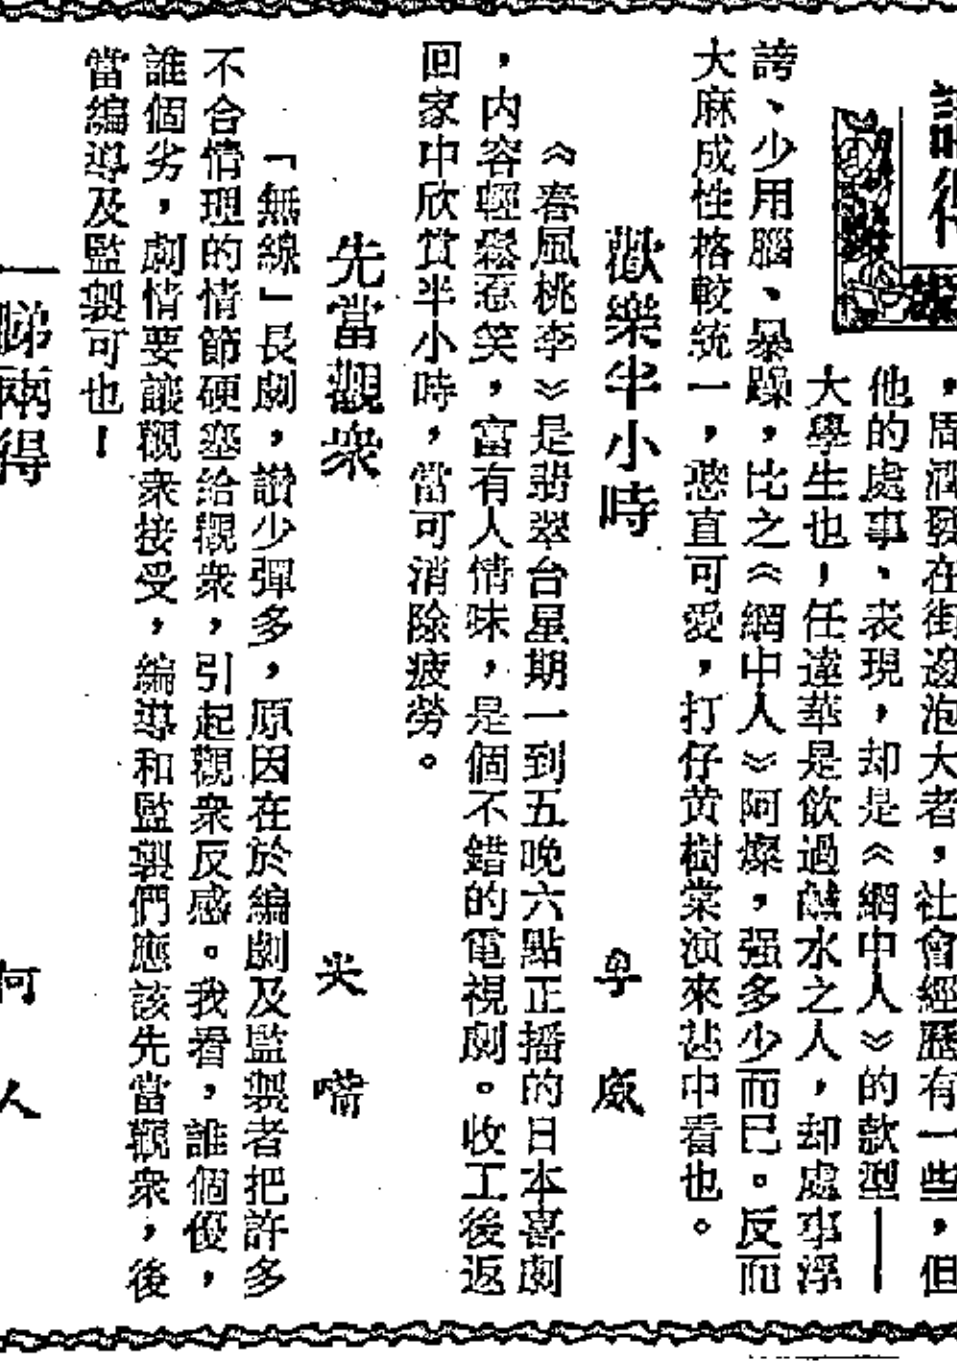 ，周潤發在街邊泡大者，社會經歷有一些，但
他的處事、表現，却是《網中人》的款型——
大學生也，任達華是飲過鹹水之人，却處事浮
誇、少用腦、暴躁，比之《網中人》阿燦，强多少而已。反而
大麻成性格較統一，戇直可愛，打仔黄樹棠演來甚中看也。
歡樂半小時
粤 威
《春風桃李》是翡翠台星期一到五晚六點正播的日本喜劇
，內容輕鬆惹笑，富有人情味，是個不錯的電視劇。收工後返
回家中欣賞半小時，當可消除疲勞。
先當觀衆
尖 嘴
「無線」長劇，讚少彈多，原因在於編劇及監製者把許多
不合情理的情節硬塞給觀衆，引起觀衆反感。我看，誰個優，
誰個劣，劇情要讓觀衆接受，編導和監製們應該先當觀衆，後
當編導及監製可也！
一睇兩得
何 人